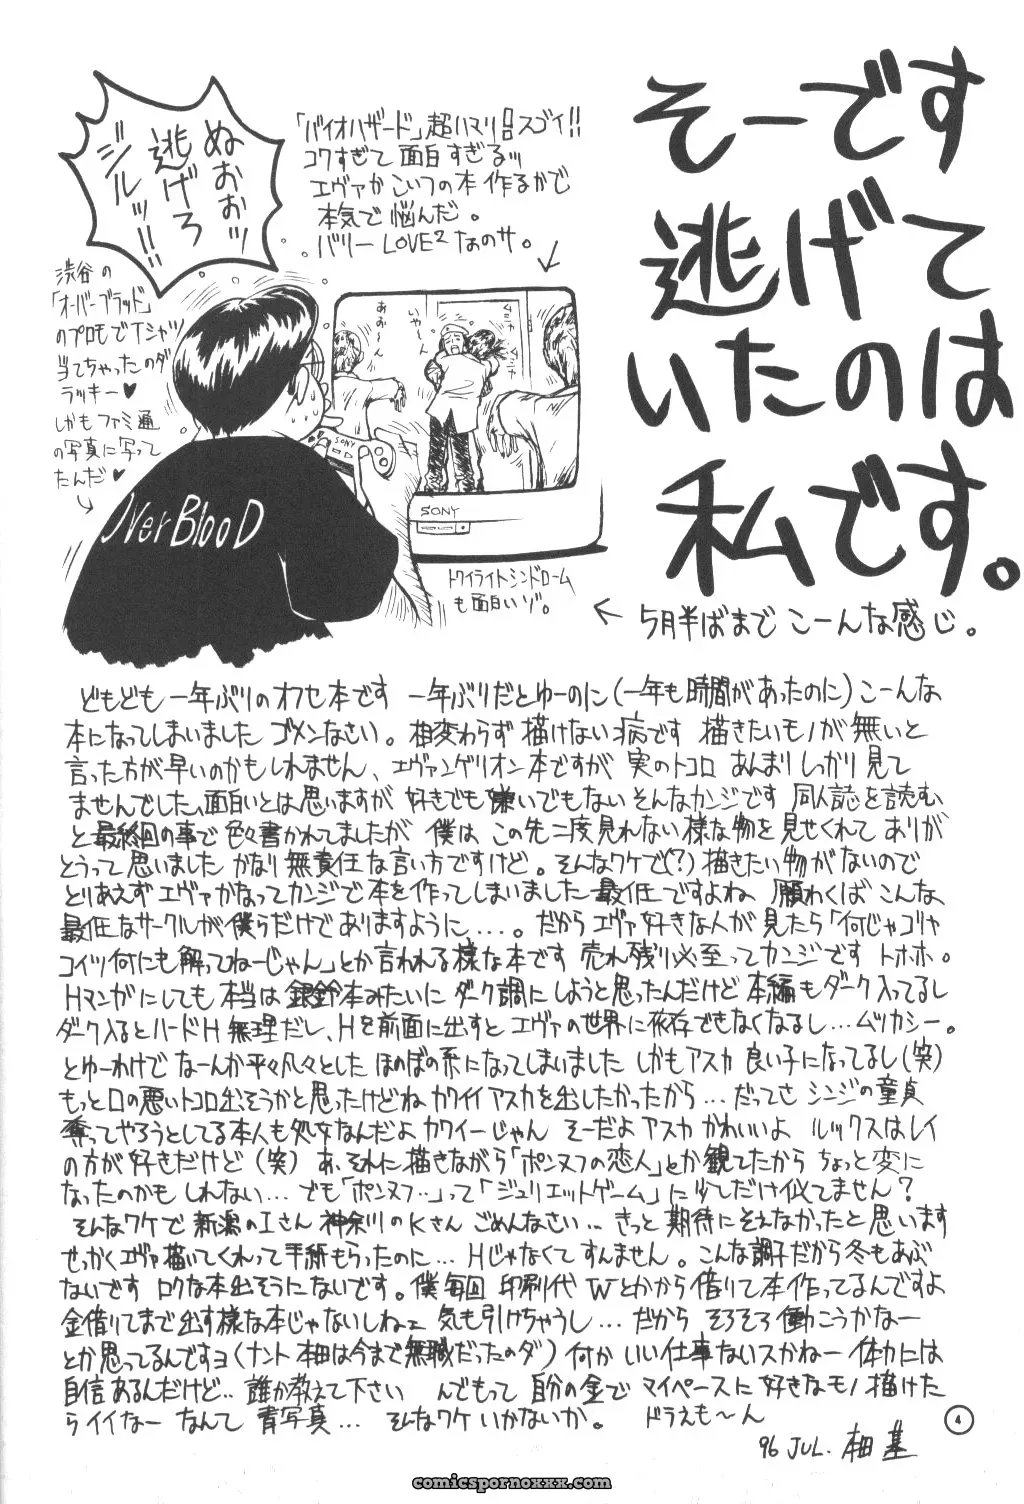 そーです
逃げて
いたのは
私です。
「バイオハザード」超ハマリ スゴイ!!
コワすぎて面白すぎるッ
エヴァかこいつの本作るかで
本気で悩んだ。
バリーLOVE2なのサ。
ぬぉぉッ
逃げろ
ジルッ!!
渋谷の
「オーバーブラッド」
のプロモでTシャツ
当てちゃったのダ
ラッキー♥
しかもファミ通
の写真に写って
たんだ♥
OverBlooD
いやーん
SONY
SONY
トワイライトシンドローム
も面白いゾ。
← 5月半ばまでこーんな感じ。
どもども一年ぶりのオフセ本です 一年ぶりだとゆーのに(一年も時間があったのに)こーんな
本になってしまいました ゴメンなさい。相変わらず描けない病です 描きたいモノが無いと
言った方が早いのかもしれません、エヴァンゲリオン本ですが 実のトコロ あんまりしっかり見て
ませんでした、面白いとは思いますが 好きでも嫌いでもない そんなカンジです 同人誌を読む
と最終回の事で色々書かれてましたが 僕は この先二度見れない様な物を見せくれて ありが
とうって思いました かなり無責任な言い方ですけど。そんなワケで(?)描きたい物がないので
とりあえずエヴァかなってカンジで本を作ってしまいました 最低ですよね 願わくば こんな
最低なサークルが僕らだけでありますように...。だからエヴァ好きな人が見たら「何じゃゴリャ
コイツ何にも解ってねーじゃん」とか言われる様な本です 売れ残り必至ってカンジです トホホ。
Hマンガにしても本当は銀鈴本みたいに ダーク調にしようと思ったんだけど 本編もダーク入ってるし
ダーク入るとハードH無理だし、Hを前面に出すと エヴァの世界に依存できなくなるし…ムツカシー。
とゆーわけで なーんか平々凡々とした ほのぼの系になってしまいました しかもアスカ 良い子になってるし(笑)
もっと口の悪いトコロ出そうかと思ったけどね カワイイアスカを出したかったから… だってさ シンジの童貞
奪ってやろうとしてる本人も処女なんだよ カワイーじゃん そーだよ アスカ かわいいよ ルックスはレイ
の方が好きだけど(笑) あ、それに描きながら「ポンヌフの恋人」とか観てたから ちょっと変に
なったのかも しれない… でも「ポンヌフ‥」って「ジュリエットゲーム」に少しだけ似てません?
そんなワケで 新潟のIさん 神奈川のKさん ごめんなさい‥ きっと期待にそえなかったと思います
せっかくエヴァ描いてくれって手紙もらったのに… Hじゃなくてすんません。こんな調子だから冬もあぶ
ないです ロクな本出そうにないです。僕毎回 印刷代 Wとかから借りて本作ってるんですよ
金借りてまで出す様な本じゃないしねェ 気も引けちゃうし… だから そろそろ働こうかなー
とか思ってるんですヨ(ナント 柚は今まで無職だったのダ) 何かいい仕事ないスかねー 体力には
自信あるんだけど‥ 誰か教えて下さい んでもって 自分の金で マイペースに好きなモノ描けた
らイイなー なんて 青写真… そんなワケいかないか。 ドラえも〜ん
96 JUL.
4
comicspornoxxx.com